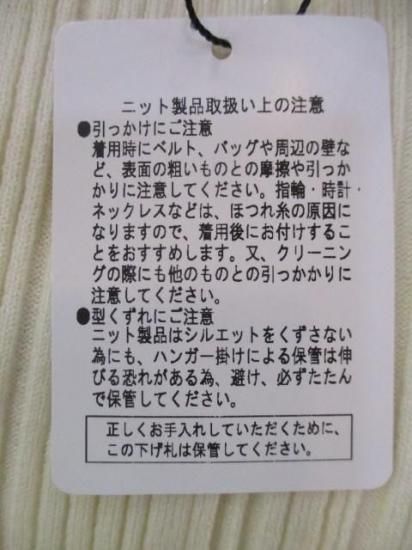 ニット製品取扱い上の注意
●引っかけにご注意
着用時にベルト、バッグや周辺の壁な
ど、表面の粗いものとの摩擦や引っか
かりに注意してください。指輪・時計・
ネックレスなどは、ほつれ糸の原因に
なりますので、着用後にお付けするこ
とをおすすめします。又、クリーニン
グの際にも他のものとの引っかかりに
注意してください。
●型くずれにご注意
ニット製品はシルエットをくずさない
為にも、ハンガー掛けによる保管は伸
びる恐れがある為、避け、必ずたたん
で保管してください。
正しくお手入れしていただくために、
この下げ札は保管してください。